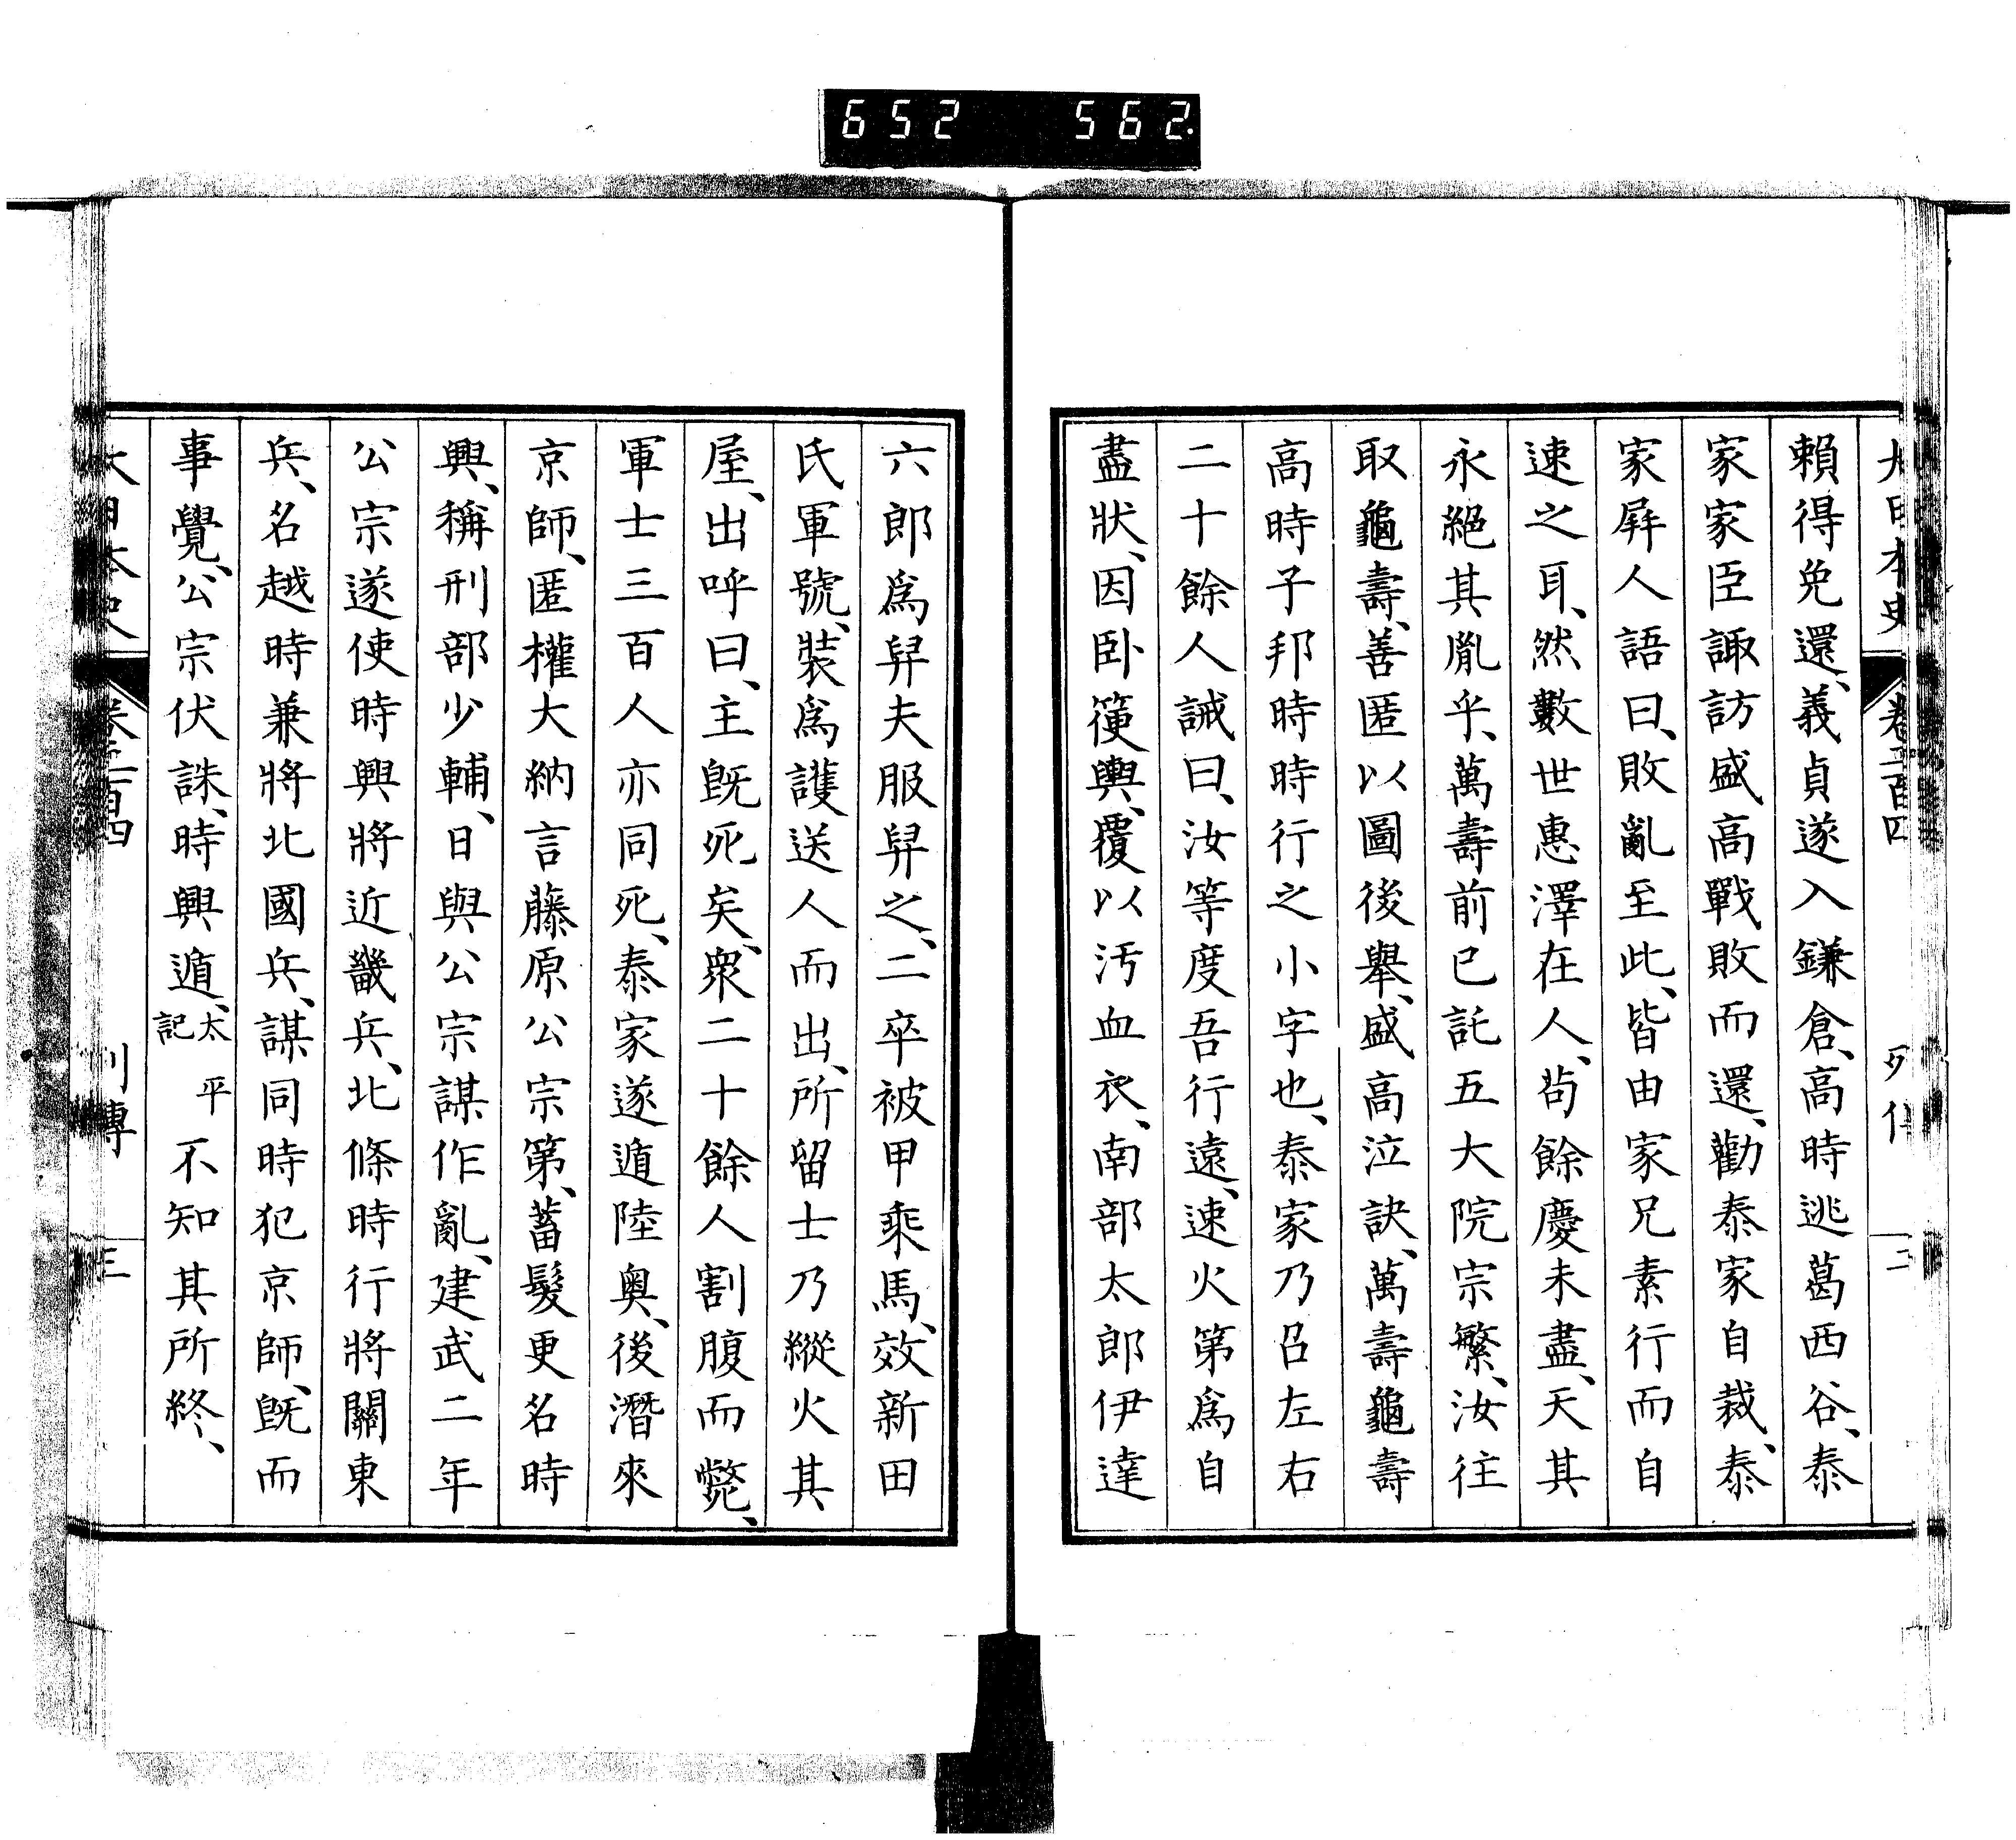 652 562
大日本史 卷二百四 列傳 三
賴得免還、義貞遂入鎌倉、高時逃葛西谷、泰
家家臣諏訪盛高戰敗而還、勸泰家自裁、泰
家屏人語曰、敗亂至此、皆由家兄素行而自
速之耳、然數世惠澤在人、苟餘慶未盡、天其
永絕其胤乎、萬壽前已託五大院宗繁、汝往
取龜壽、善匿以圖後舉、盛高泣訣、萬壽龜壽
高時子邦時時行之小字也、泰家乃召左右
二十餘人誡曰、汝等度吾行遠、速火第爲自
盡狀、因卧箯輿、覆以汚血衣、南部太郎伊達
六郎爲舁夫服舁之、二卒被甲乘馬、效新田
氏軍號、裝爲護送人而出、所留士乃縱火其
屋、出呼曰、主既死矣、衆二十餘人割腹而斃、
軍士三百人亦同死、泰家遂遁陸奧、後潛來
京師、匿權大納言藤原公宗第、蓄髮更名時
興、稱刑部少輔、日與公宗謀作亂、建武二年
公宗遂使時興將近畿兵、北條時行將關東
兵、名越時兼將北國兵、謀同時犯京師、既而
事覺、公宗伏誅、時興遁、太平記 不知其所終、
大日本史 卷二百四 列傳 三